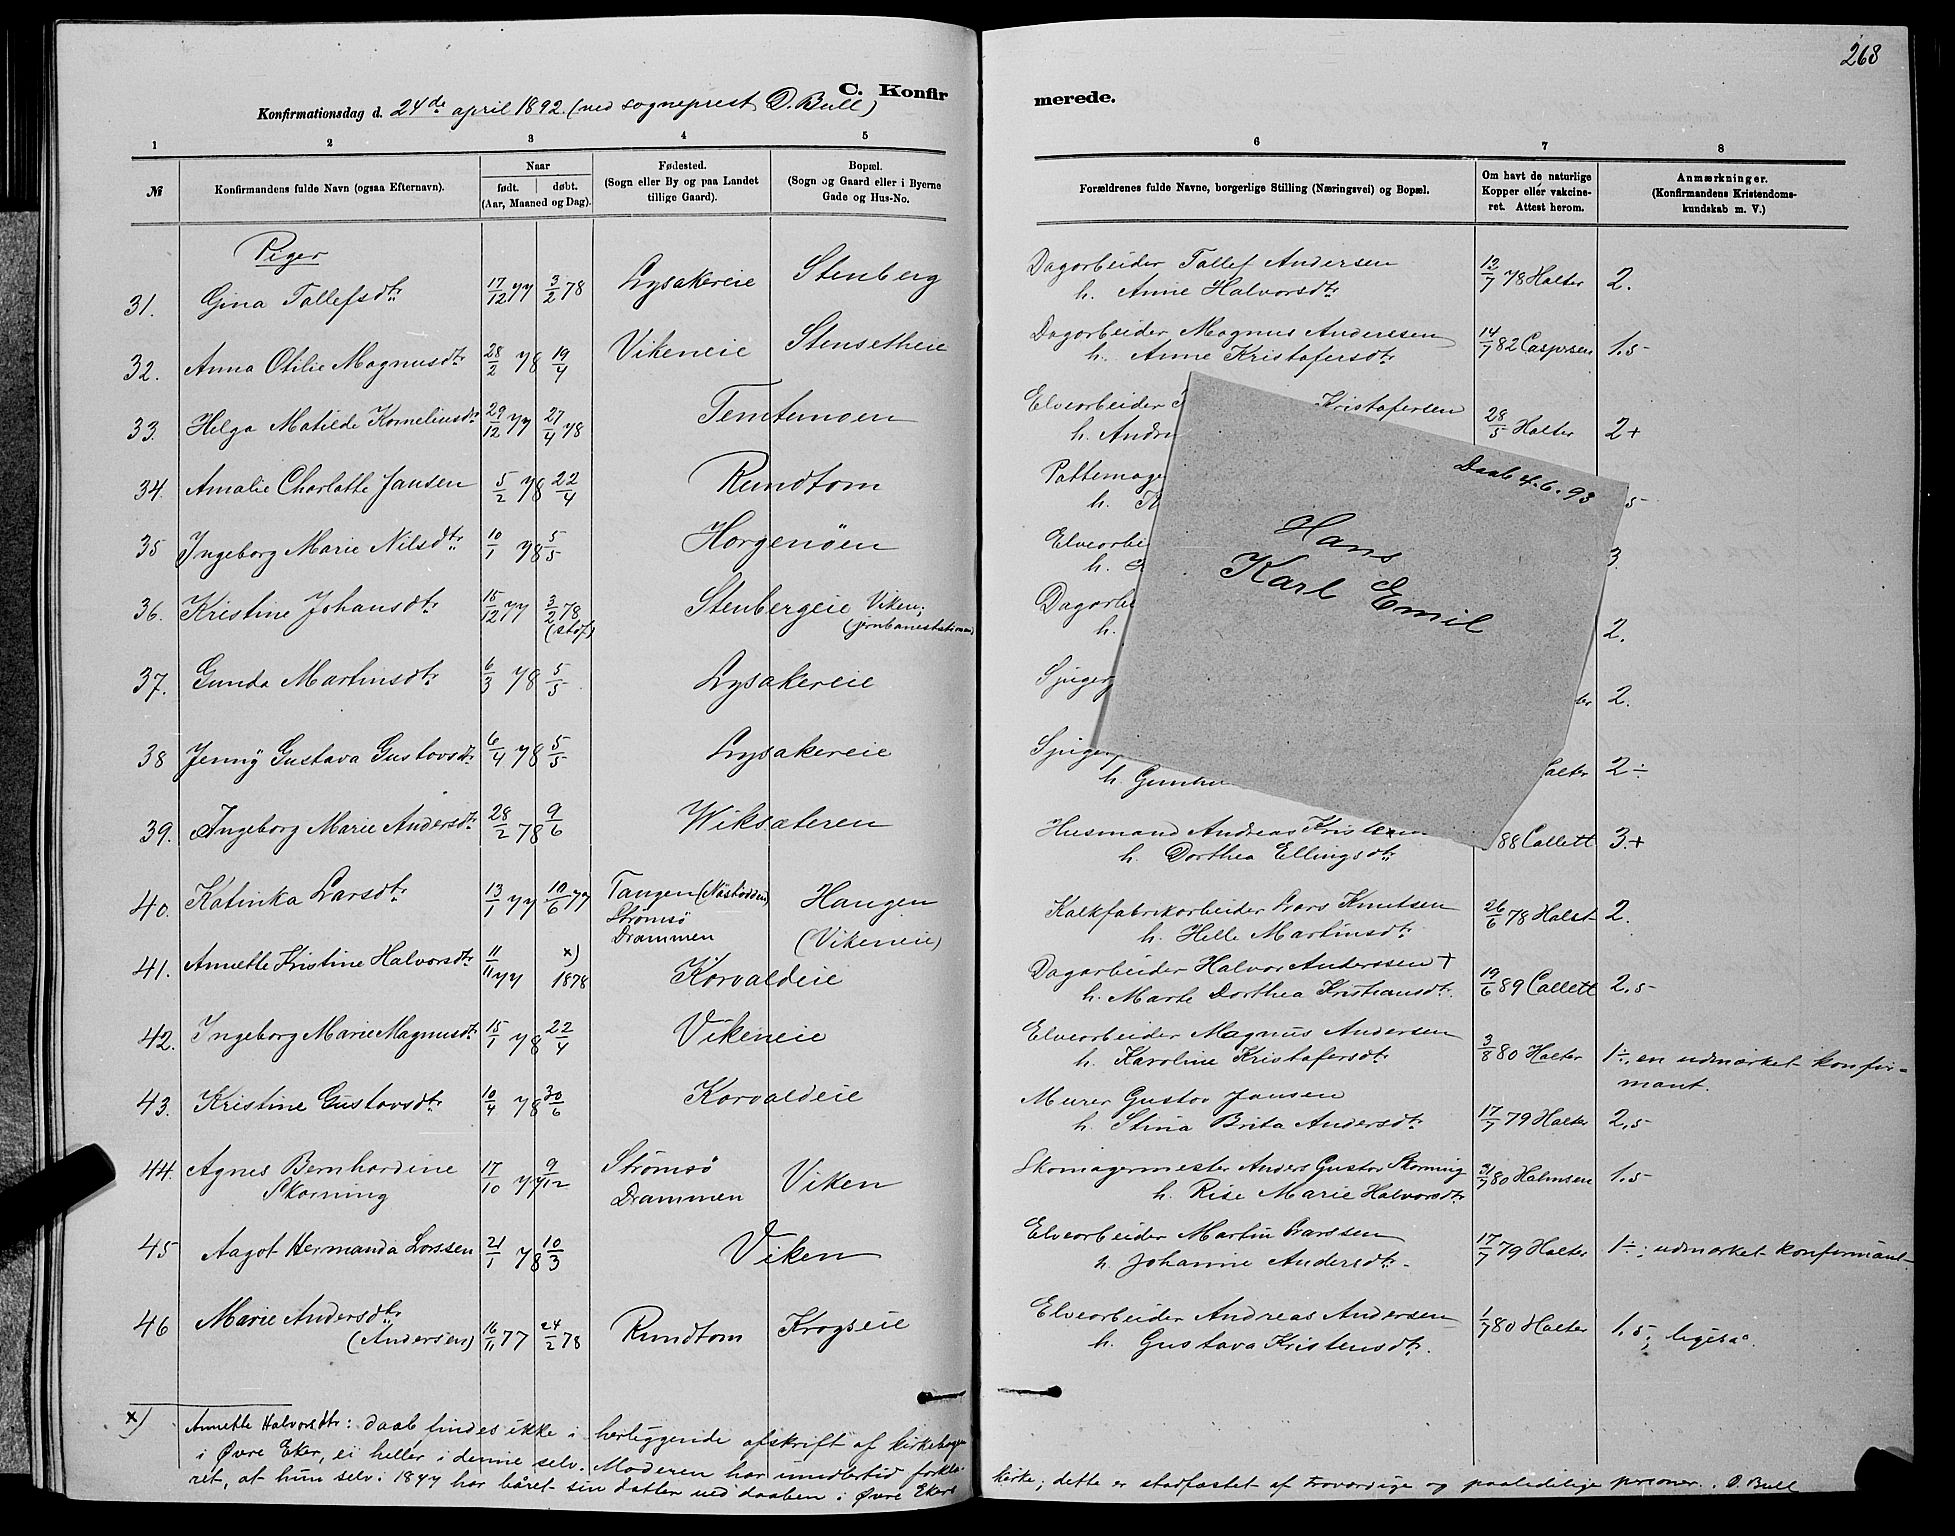 268
C. Konfirmerede.
Konfirmationsdag d. 24de april 1892. (ved sogneprest D. Bull)
1 2 3 4 5 6 7 8
№
Konfirmandens fulde Navn (ogsaa Efternavn).
Naar
født. døbt.
(Aar, Maaned og Dag).
Fødested.
(Sogn eller By og paa Landet
tillige Gaard).
Bopæl.
(Sogn og Gaard eller i Byerne
Gade og Hus-No.
Forældrenes fulde Navne, borgerlige Stilling (Næringsvei) og Bopæl.
Om havt de naturlige
Kopper eller vakcine-
ret. Attest herom.
Anmærkninger.
(Konfirmandens Kristendoms-
kundskab m. V.)
Piger
31. Gina Tollefsdtr. 17/12 77 3/2 78 Lysakereie Stenberg Dagarbeider Tollef Andersen 12/7 78 Halter 2.
h. Anne Halvorsdtr
32. Anna Otilie Magnusdtr 28/2 78 19/4 Vikeneie Stensetheie Dagarbeider Magnus Anderssen 14/7 82 Caspersen 1.5
h. Anne Kristofersdtr
33. Helga Matilde Korneliusdtr 29/12 77 27/4 78 Temtemoen Elvearbeider Kristofersen 28/5 Halter 2+
h. Andr
34. Amalie Charlotte Jansen 5/2 78 22/4 Rundtom Pottemage 5
h.
35 Ingeborg Marie Nilsdtr. 10/1 78 5/5 Horgenöen Elvearbei 3.
h.
36. Kristine Johansdtr 15/12 77 3/2 78 Stenbergeie Viken; Dagarbe 2.
(stof) (jernbanestationen)
h.
37. Gunda Martinsdtr 6/3 78 5/5 Lysakereie Spiger 2.
38 Jenny Gustava Gustavsdtr. 6/4 78 5/5 Lysakereie Spiger
h. Gunhi alter 2÷
39. Ingeborg Marie Andersdtr. 28/2 78 9/6 Wiksæteren Husmand Andreas Kristen 88 Collett 3+
h. Dorthea Ellingsdtr.
40. Katinka Larsdtr 13/1 77 10/6 77 Tangen (Næstodden) Haugen Kalkfabrikarbeider Lars Knutsen 26/6 78 Holst 2.
Strömsö
Drammen (Vikeneie) h. Helle Martinsdtr.
41. Annette Kristine Halvorsdtr. 11/11 77 x) 1878 Korvaldeie Dagarbeider Halvor Anderssen + 19/6 89 Collett 2,5
h. Marte Dorthea Kristiansdtr.
42. Ingeborg Marie Magnusdtr. 15/1 78 22/4 Vikeneie Elvearbeider Magnus Andersen 3/8 80 Halter 1÷, en udmærket konfir-
h. Karoline Kristofersdtr mant.
43. Kristine Gustavsdtr. 10/4 78 30/6 Korvaldeie Murer Gustav Jansen
h. Stina Brita Andersdtr. 17/7 79 Halter 2,5
44. Agnes Bernhardine 17/10 77 9/12 Strömsö Viken Skomagermester Anders Gustav Skorning 31/7 80 Holmsen 1.5
Skorning Drammen h. Rise Marie Halvorsdtr
45 Aagot Hermanda Larssen 21/1 78 10/3 Viken Elvearbeider Martin Larssen 17/7 79 Halter 1÷; udmærket konfirmant.
h. Johanne Andersdtr.
46 Marie Andersdtr. Elvearbeider Andreas Andersen
(Andersen) 16/11 77 24/2 78 Rundtom Krogseie 1/7 80 Halter 1.5; ligesaa.
h. Gustava Kristensdtr.
Daab 4.6.93
Hans
Karl Emil
x) Annette Halvorsdtr: daab findes ikke i herliggende afskrift af kirkebogen
i Øvre Eker, ei heller i denne selv. Moderen har imidlertid forkla-
ret, at hun selv i 1877 har båret sin datter ved daaben i Øvre Ekers
kirke; dette er stadfæstet af troværdige og paalidelige personer. D. Bull